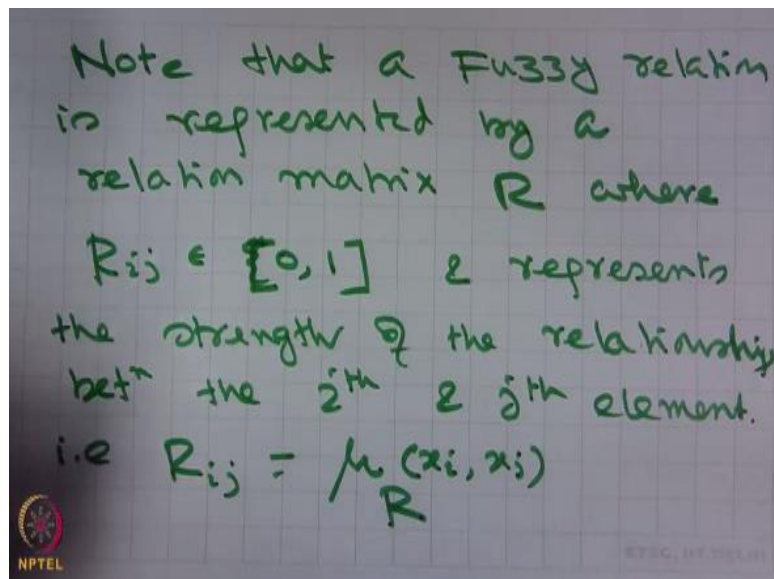 Note that a Fuzzy relation
is represented by a
relation matrix R where
Rij ∈ [0, 1] & represents
the strength of the relationship
betⁿ the ith & jth element.
i.e Rij = μR (xi, xj)
NPTEL
ETSC, IIT DELHI